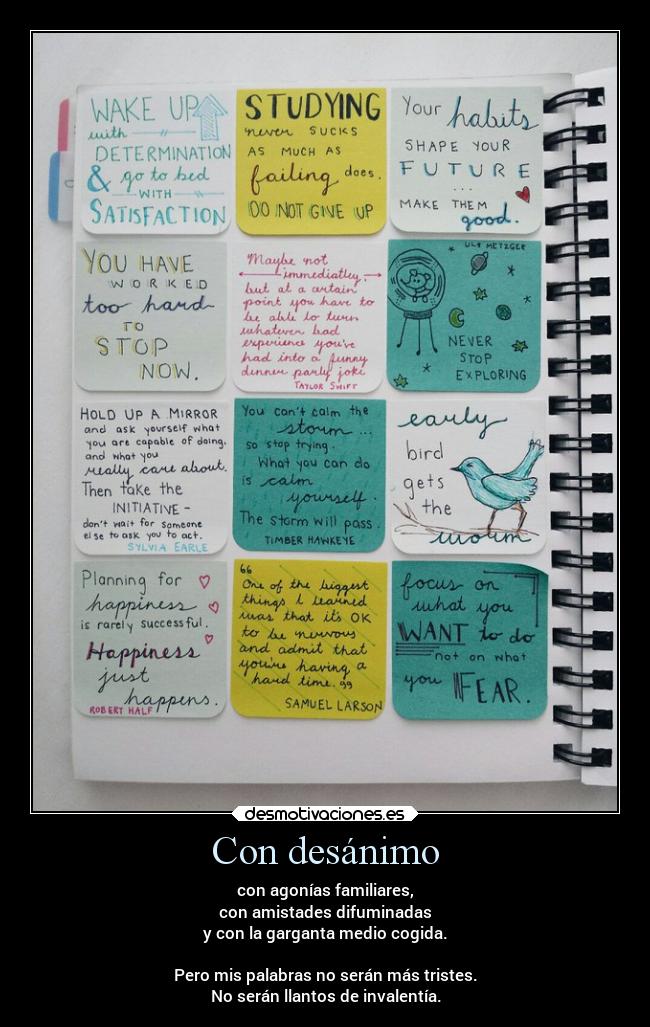 WAKE UP
with
DETERMINATION
& go to bed
WITH
SATISFACTION
STUDYING
never SUCKS
AS MUCH AS
failing does.
DO NOT GIVE UP
Your habits
SHAPE YOUR
FUTURE
...
MAKE THEM
good.
YOU HAVE
WORKED
too hard
TO
STOP
NOW.
Maybe not
immediatley,
but at a certain
point you have to
be able to turn
whatever bad
experience you've
had into a funny
dinner party joke
TAYLOR SWIFT
ULF METZGER
NEVER
STOP
EXPLORING
HOLD UP A MIRROR
and ask yourself what
you are capable of doing.
and what you
really care about.
Then take the
INITIATIVE -
don't wait for someone
else to ask you to act.
SYLVIA EARLE
You can't calm the
storm ...
so stop trying.
What you can do
is calm
yourself.
The storm will pass.
TIMBER HAWKEYE
early
bird
gets
the
worm
Planning for
happiness
is rarely successful.
Happiness
just
happens.
ROBERT HALF
“
One of the biggest
things I learned
was that it's OK
to be nervous
and admit that
you're having a
hard time. ”
SAMUEL LARSON
focus on
what you
WANT to do
not on what
you FEAR.
desmotivaciones.es
Con desánimo
con agonías familiares,
con amistades difuminadas
y con la garganta medio cogida.
Pero mis palabras no serán más tristes.
No serán llantos de invalentía.